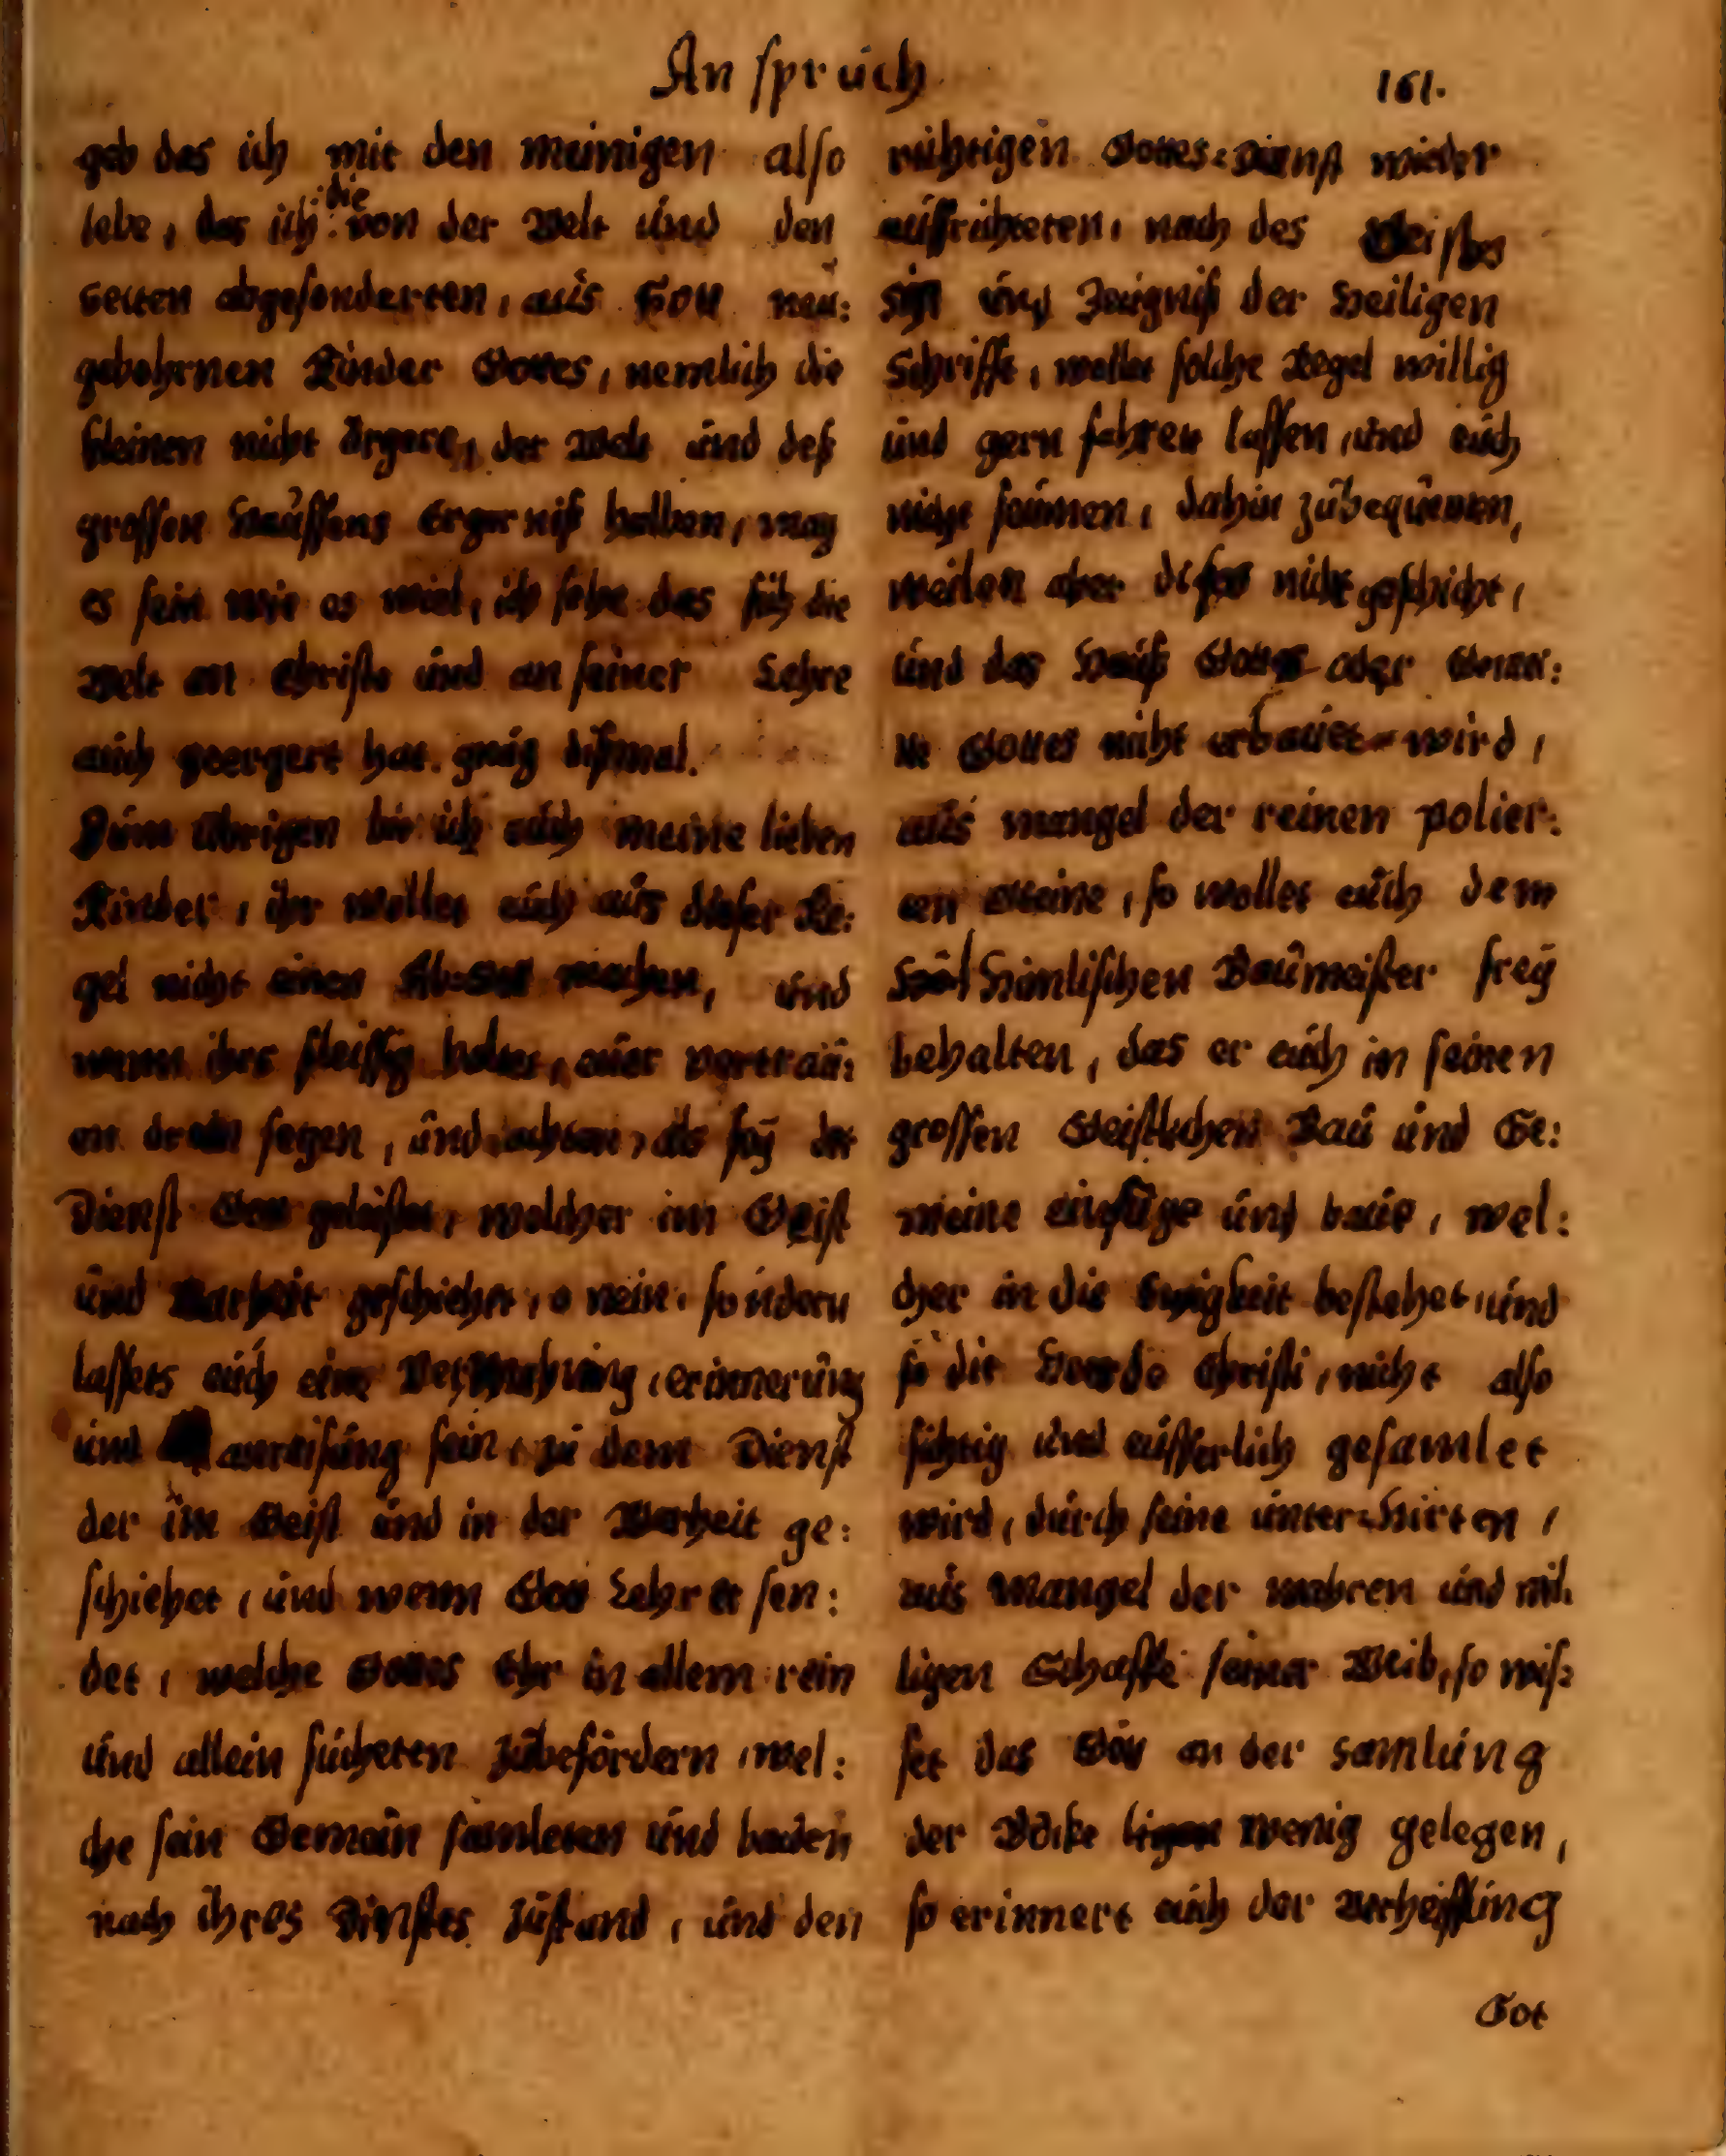 An spruch
161.
geb das ich mit den meinigen also
lebe, das ich die von der Welt und den
secten abgesonderten, aus Gott neu:
gebohrnen Kinder Gottes, nemlich die
kleinen nicht ärgere, der Welt und deß
grossen Hauffens Ergerniß halben, mag
es sein wie es will, ich sehe das sich die
Welt an Christo und an seiner Lehre
auch geergert hat. gnug dißmal.
Zum übrigen bit ich euch meine lieben
Kinder, ihr wollet euch aus dieser Re:
gel nicht einen machen, und
wenn ihrs fleissig haltet, euer vertrau:
en drein setzen, und achten, als sey der
Dienst Gott geleistet, welcher im Geist
und Warheit geschiehet, o nein, sondern
lassets euch eine, erinnerung
und anweisung sein, zu dem Dienst
der im Geist und in der Warheit ge:
schiehet, und wenn Gott Lehrer sen:
det, welche Gottes Ehr in allem rein
und allein sucheten zubefördern, wel:
che sein Gemein samleten und bauten
nach ihres Dinstes zustand, und den
richtigen Gottes=Dienst wieder
auffrichteten, nach des Geistes
sin und Zeugniß der Heiligen
Schrifft, wollet solche Regel willig
und gern fahren lassen, und euch
nicht seumen, dahin zubequemen,
weilen aber dises nicht geschicht,
und das Hauß Gottes oder Gemei:
ne Gottes nicht erbauet wird,
aus mangel der reinen polier:
ten Steine, so wollet euch dem
Himlischen Baumeister frey
behalten, das er euch in seinen
grossen Geistlichen Bau und Ge:
meine einfüge und baue, wel:
cher in die Ewigkeit bestehet, und
so die Heerde Christi, nicht also
sichtig und eusserlich gesamlet
wird, durch seine unter=Hirten,
aus Mangel der wahren und wil:
ligen Schaffe seiner Weid, so wis:
set das Gott an der samlung
der Böcke wenig gelegen,
so erinnert euch der Verheissung
Got